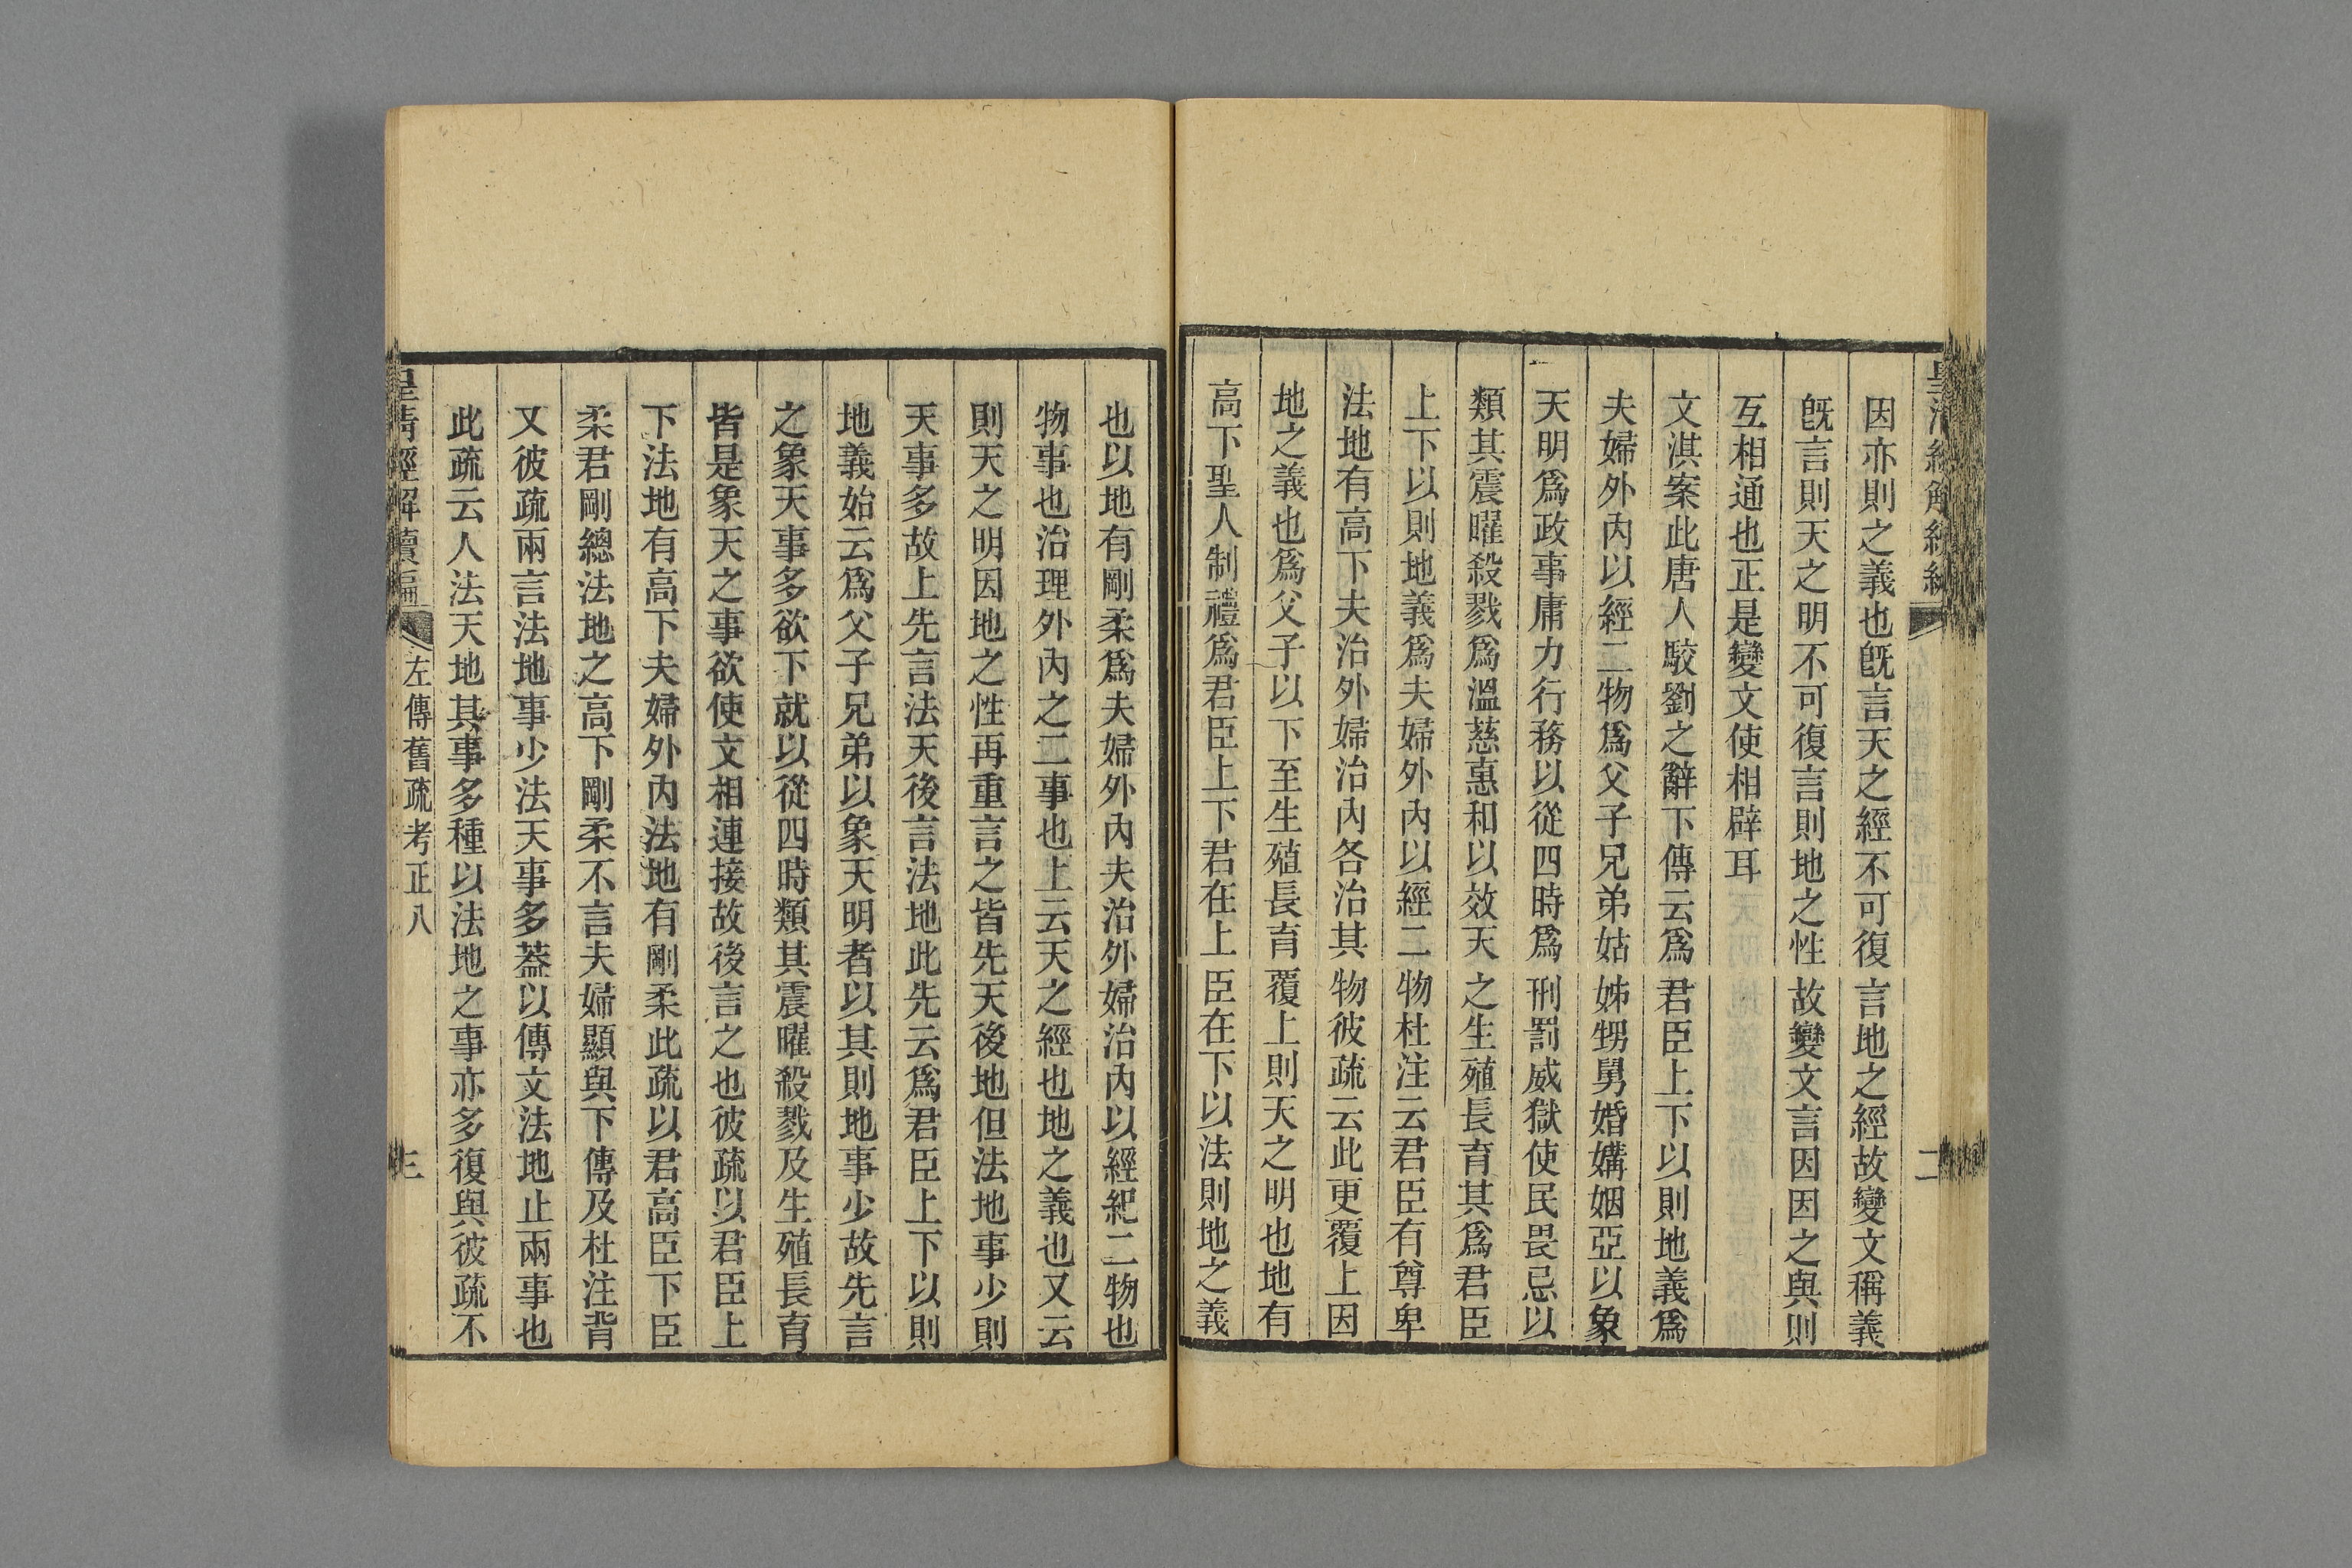 因亦則之義也旣言天之經不可復言地之經故變文稱義
旣言則天之明不可復言則地之性故變文言因因之與則
互相通也正是變文使相辟耳
文淇案此唐人駮劉之辭下傳云爲君臣上下以則地義爲
夫婦外內以經二物爲父子兄弟姑姊甥舅婚媾姻亞以象
天明爲政事庸力行務以從四時爲刑罰威獄使民畏忌以
類其震曜殺戮爲溫慈惠和以效天之生殖長育其爲君臣
上下以則地義爲夫婦外內以經二物杜注云君臣有尊卑
法地有高下夫治外婦治內各治其物彼疏云此更覆上因
地之義也爲父子以下至生殖長育覆上則天之明也地有
高下聖人制禮爲君臣上下君在上臣在下以法則地之義
二
也以地有剛柔爲夫婦外內夫治外婦治內以經紀二物也
物事也治理外內之二事也上云天之經也地之義也又云
則天之明因地之性再重言之皆先天後地但法地事少則
天事多故上先言法天後言法地此先云爲君臣上下以則
地義始云爲父子兄弟以象天明者以其則地事少故先言
之象天事多欲下就以從四時類其震曜殺戮及生殖長育
皆是象天之事欲使文相連接故後言之也彼疏以君臣上
下法地有高下夫婦外內法地有剛柔此疏以君高臣下臣
柔君剛總法地之高下剛柔不言夫婦顯與下傳及杜注背
又彼疏兩言法地事少法天事多蓋以傳文法地止兩事也
此疏云人法天地其事多種以法地之事亦多復與彼疏不
皇清經解續編
左傳舊疏考正八
三